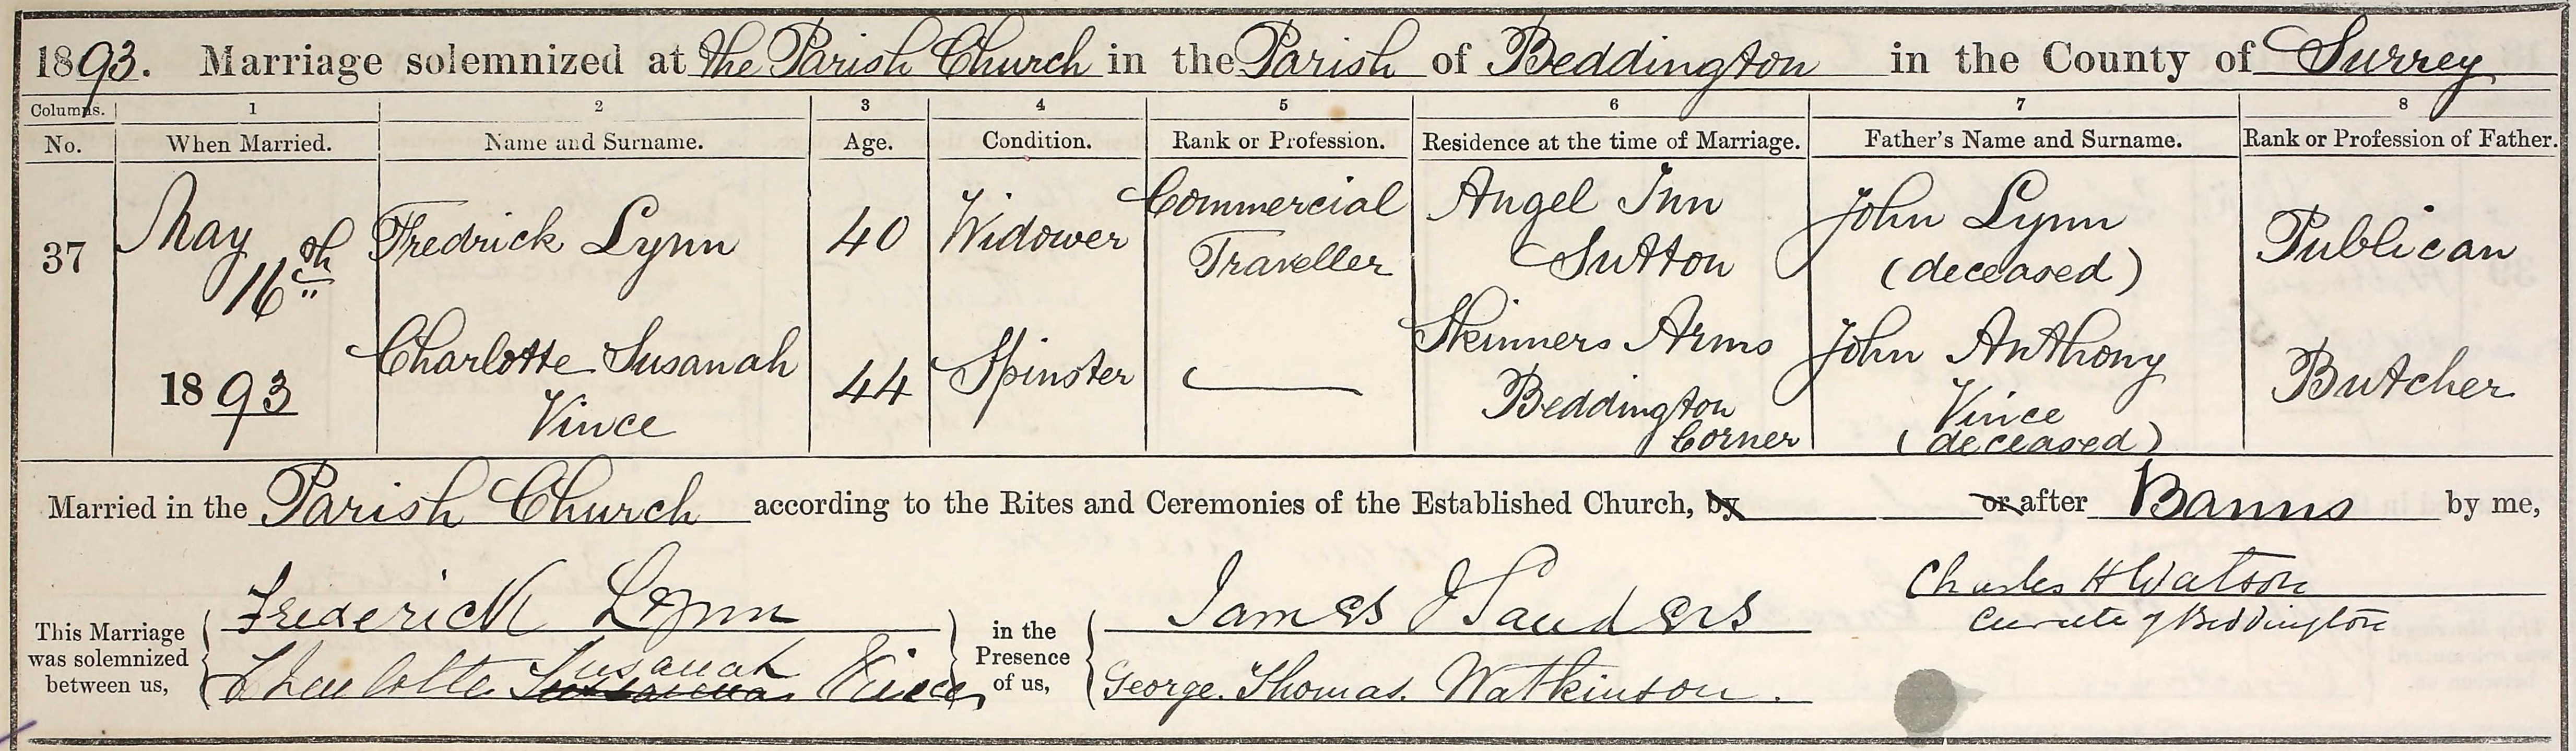 1893. Marriage solemnized at the Parish Church in the Parish of Beddington in the County of Surrey
Columns. 1 2 3 4 5 6 7 8
No. When Married. Name and Surname. Age. Condition. Rank or Profession. Residence at the time of Marriage. Father's Name and Surname. Rank or Profession of Father.
37
May
16th
1893
Fredrick Lynn
40
Widower
Commercial
Traveller
Angel Inn
Sutton
John Lynn
(deceased)
Publican
Charlotte Susanah
Vince
44
Spinster
Skinners Arms
Beddington
Corner
John Anthony
Vince
(deceased)
Butcher
Married in the Parish Church according to the Rites and Ceremonies of the Established Church, by or after Banns by me,
This Marriage
was solemnized
between us,
Frederick Lynn
Charlotte Susanah Vince
in the
Presence
of us,
James J Sanders
George. Thomas. Watkinson.
Charles H Watson
Curate of Beddington